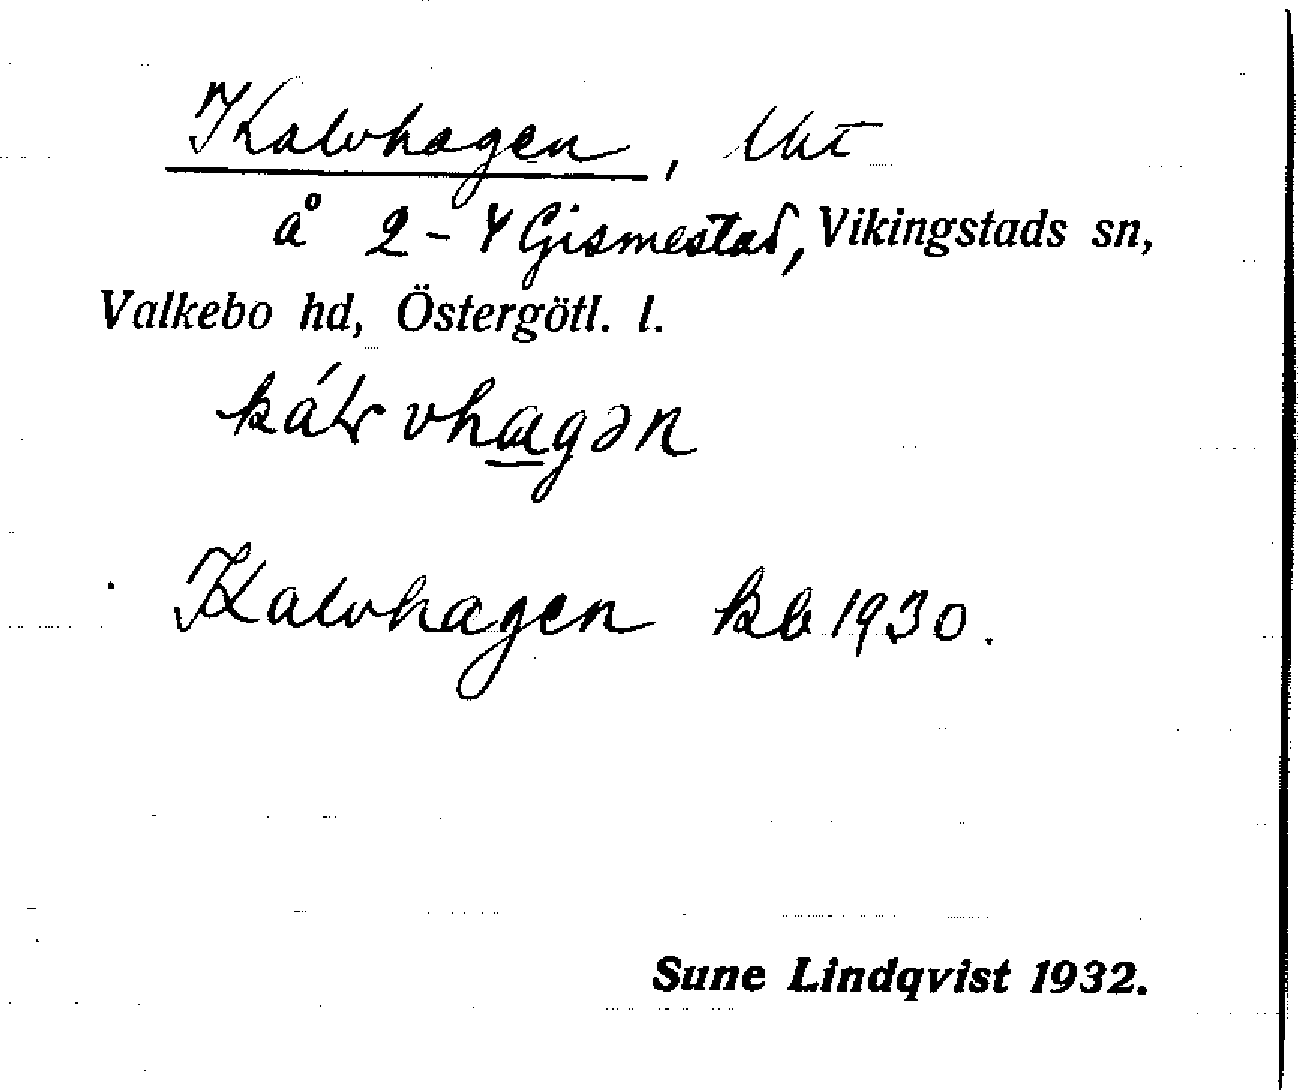 Kalvhagen, Uht
å 2-4 Gismestad, Vikingstads sn,
Valkebo hd, Östergötl. l.
Kalvhagen kb 1930.
Sune Lindqvist 1932.